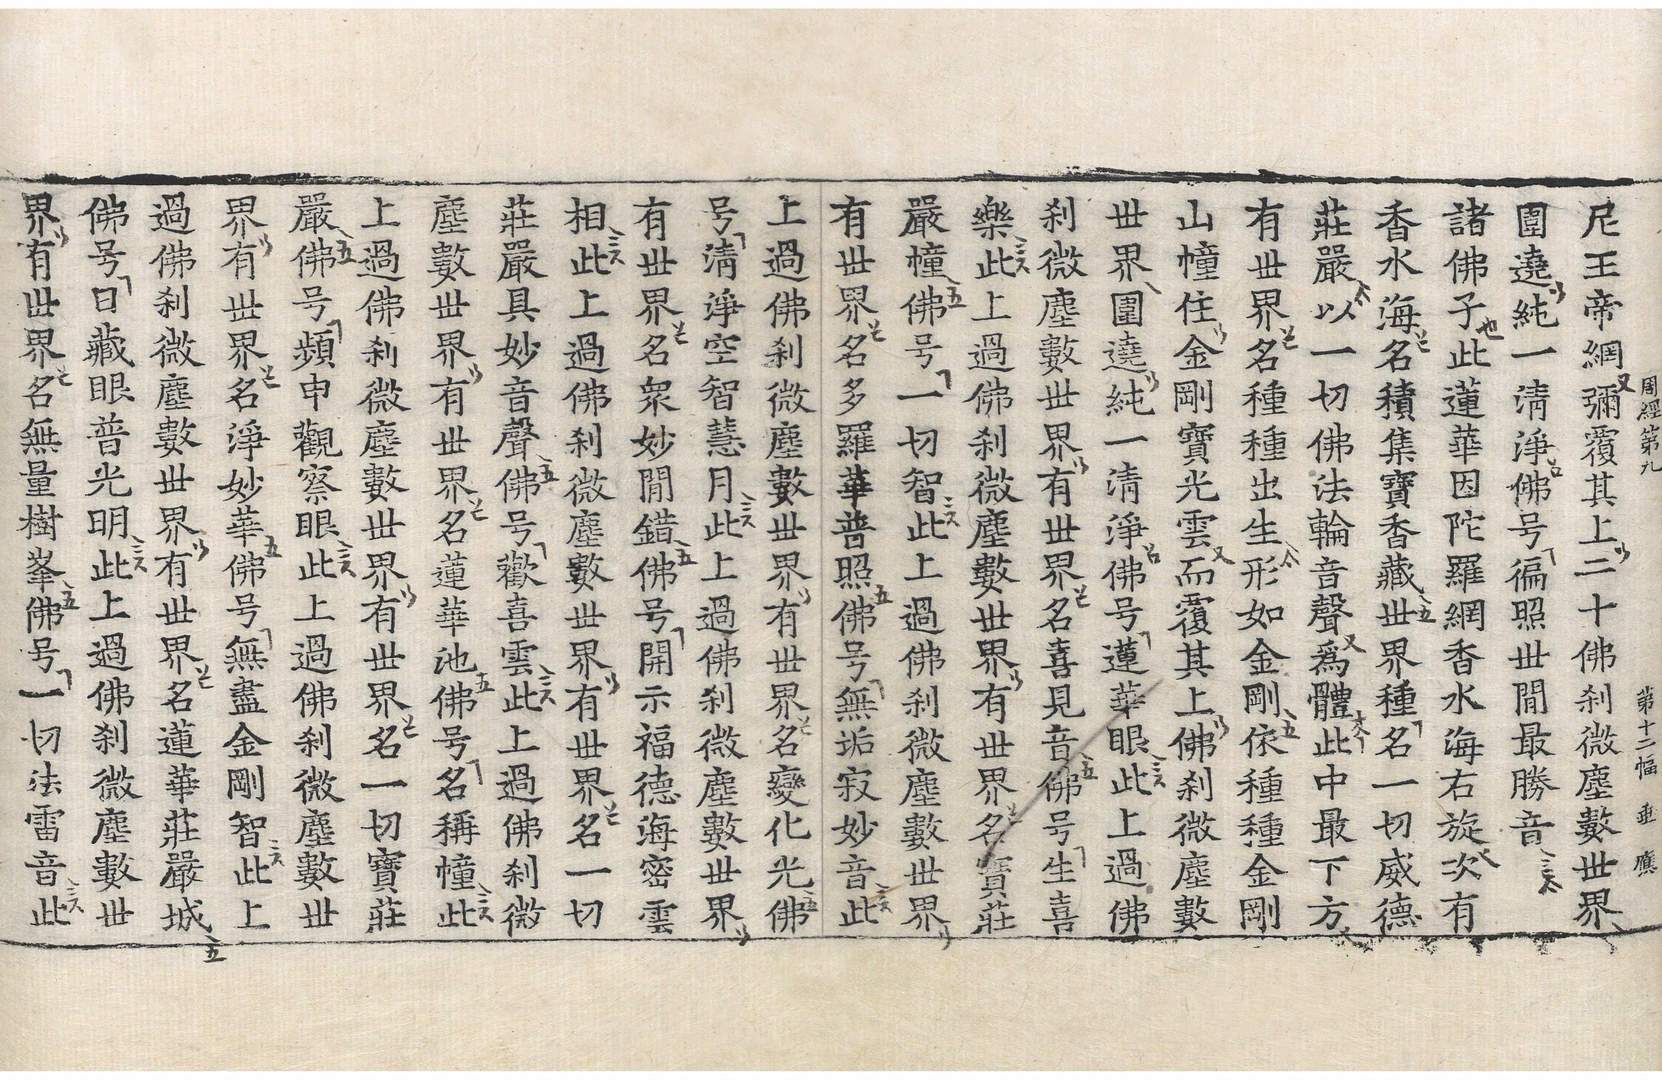 周經第九 第十二幅 應
尼王帝網彌覆其上二十佛刹微塵數世界
圍遶純一清淨佛号徧照世間最勝音
諸佛子此蓮華因陀羅網香水海右旋次有
香水海名積集寶香藏世界種名一切威德
莊嚴以一切佛法輪音聲爲體此中最下方
有世界名種種出生形如金剛依種種金剛
山幢住金剛寶光雲而覆其上佛刹微塵數
世界圍遶純一清淨佛号蓮華眼此上過佛
刹微塵數世界有世界名喜見音佛号生喜
樂此上過佛刹微塵數世界有世界名寶莊
嚴幢佛号一切智此上過佛刹微塵數世界
有世界名多羅華普照佛号無垢寂妙音此
上過佛刹微塵數世界有世界名變化光佛
号清淨空智慧月此上過佛刹微塵數世界
有世界名衆妙閒錯佛号開示福德海密雲
相此上過佛刹微塵數世界有世界名一切
莊嚴具妙音聲佛号歡喜雲此上過佛刹微
塵數世界有世界名蓮華池佛号名稱幢此
上過佛刹微塵數世界有世界名一切寶莊
嚴佛号頻申觀察眼此上過佛刹微塵數世
界有世界名淨妙華佛号無盡金剛智此上
過佛刹微塵數世界有世界名蓮華莊嚴城
佛号日藏眼普光明此上過佛刹微塵數世
界有世界名無量樹峯佛号一切法雷音此